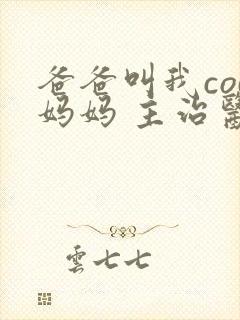 爸爸叫我co
妈妈 主治
雲七七